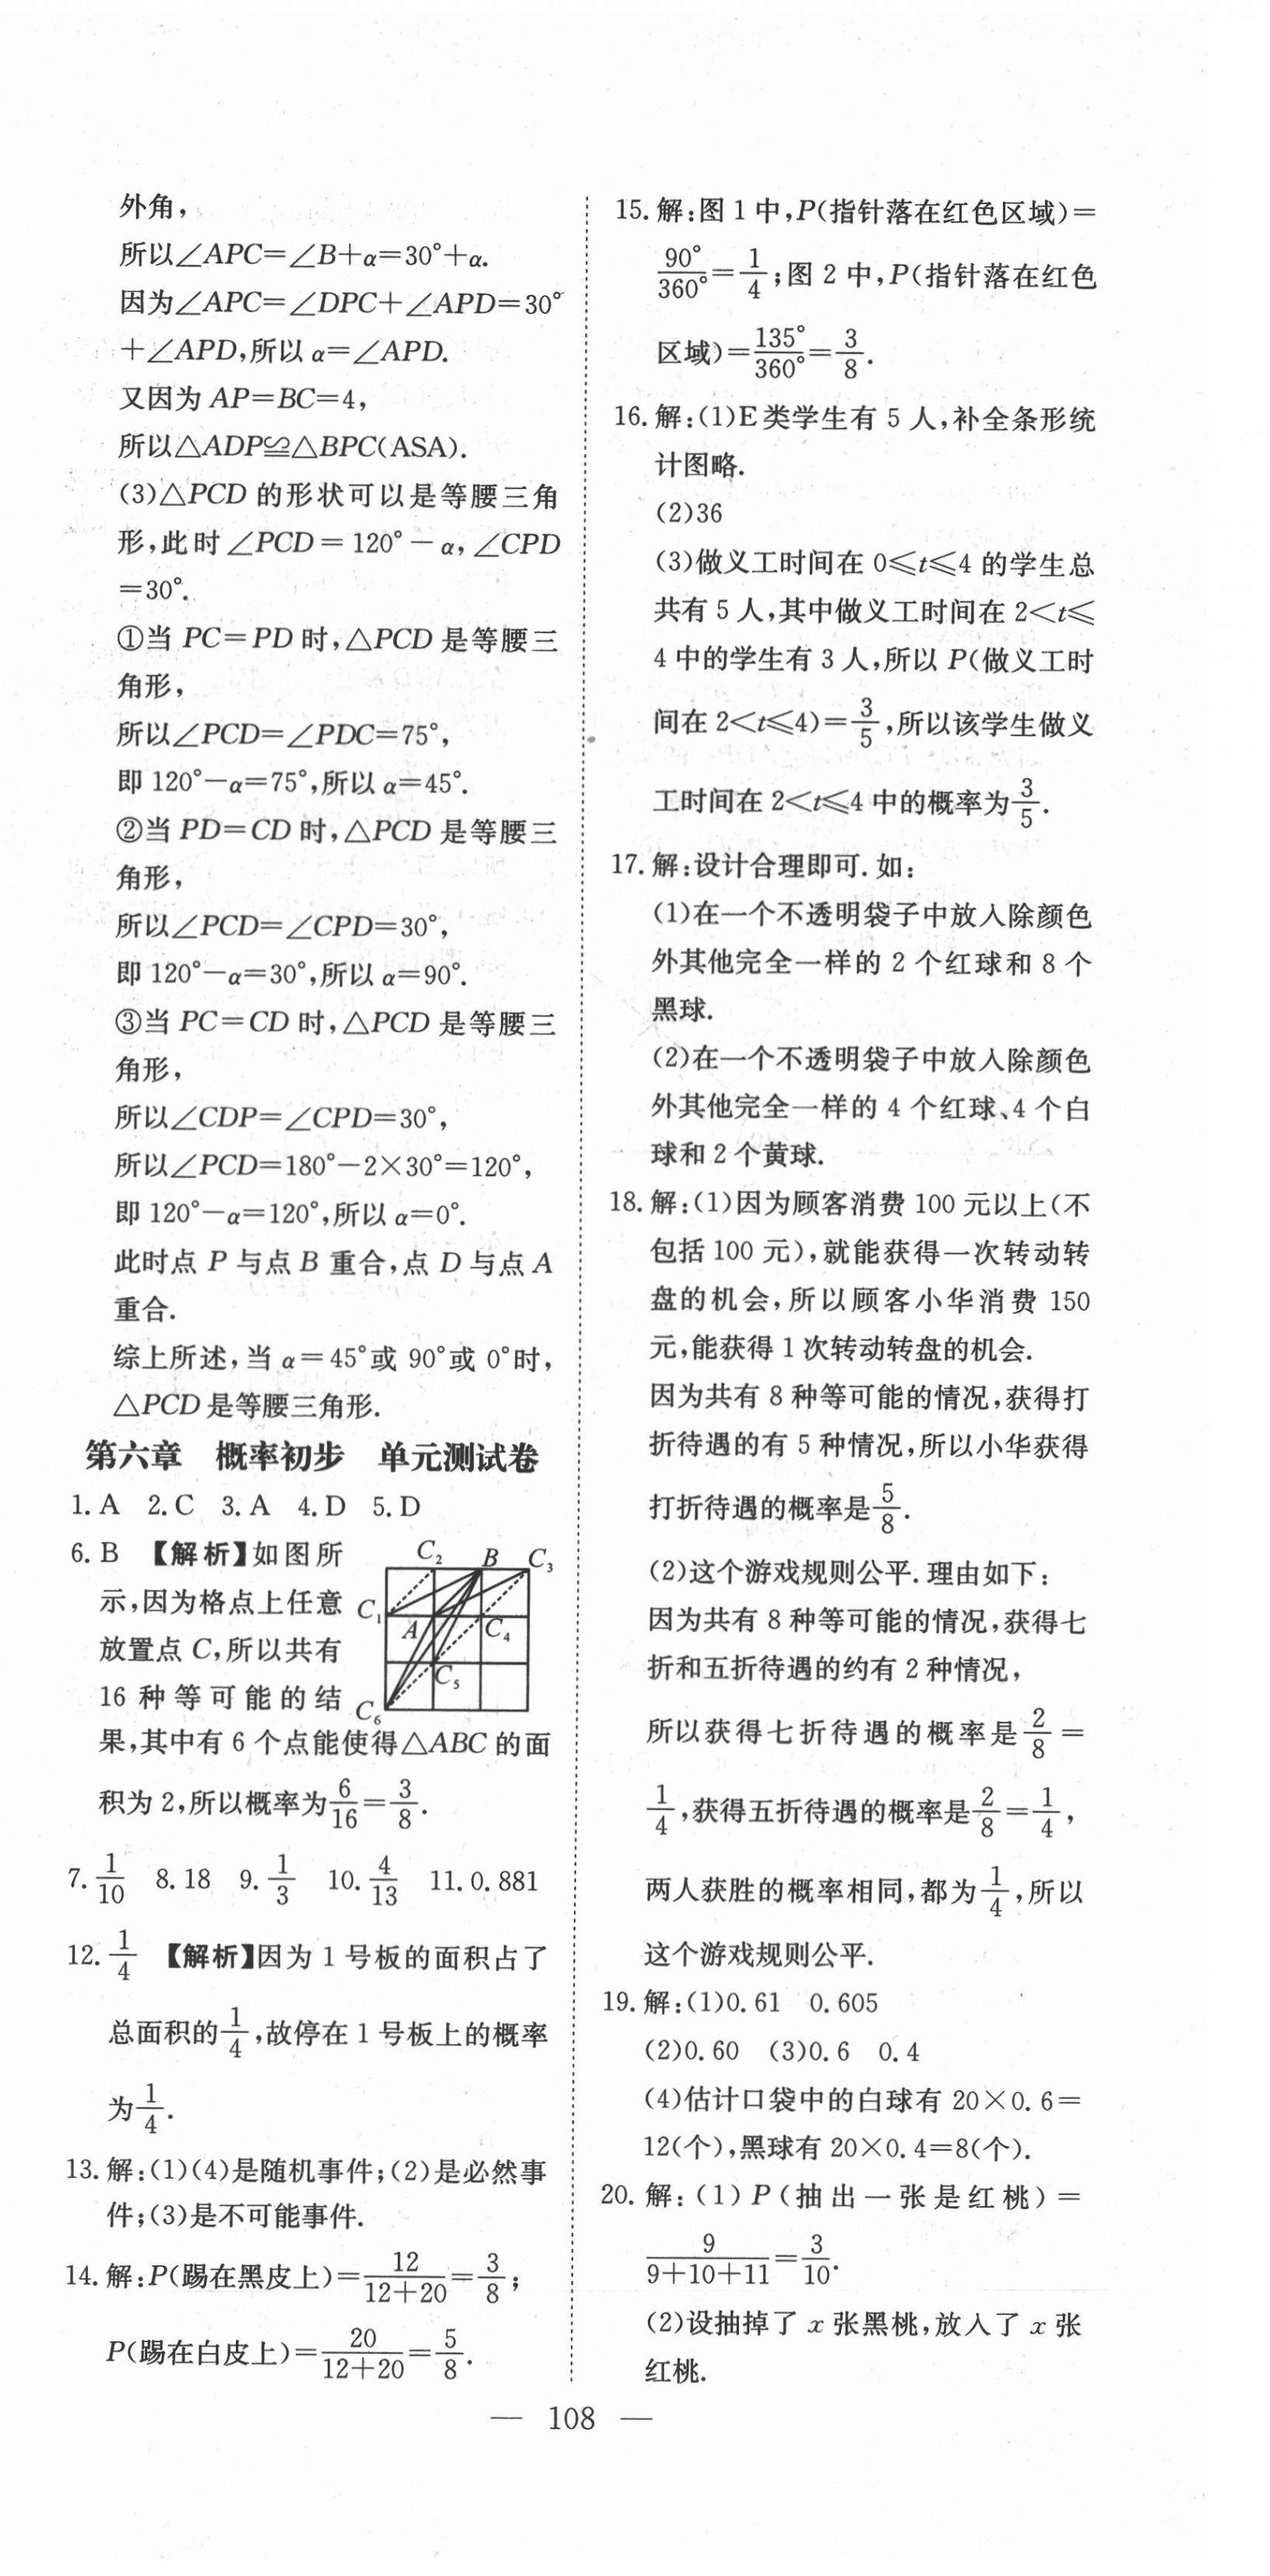 外角，
所以∠APC=∠B+α=30°+α.
因为∠APC=∠DPC+∠APD=30°
+∠APD,所以 α=∠APD.
又因为 AP=BC=4,
所以△ADP≌△BPC(ASA).
(3)△PCD 的形状可以是等腰三角
形,此时∠PCD=120°-α,∠CPD
=30°.
①当 PC=PD 时,△PCD 是等腰三
角形，
所以∠PCD=∠PDC=75°,
即 120°-α=75°,所以 α=45°.
②当 PD=CD 时,△PCD 是等腰三
角形，
所以∠PCD=∠CPD=30°,
即 120°-α=30°,所以 α=90°.
③当 PC=CD 时,△PCD 是等腰三
角形，
所以∠CDP=∠CPD=30°,
所以∠PCD=180°-2×30°=120°,
即 120°-α=120°,所以 α=0°.
此时点 P 与点 B 重合,点 D 与点 A
重合.
综上所述,当 α=45°或 90°或 0°时,
△PCD 是等腰三角形.
第六章 概率初步 单元测试卷
1. A 2. C 3. A 4. D 5. D
6. B 【解析】如图所
示,因为格点上任意
放置点 C,所以共有
16 种等可能的结
果,其中有 6 个点能使得△ABC 的面
积为 2,所以概率为6/16=3/8.
C₂ B C₃
C₁
A C₄
C₅
C₆
7. 1/10 8. 18 9. 1/3 10. 4/13 11. 0.881
12. 1/4 【解析】因为 1 号板的面积占了
总面积的1/4,故停在 1 号板上的概率
为1/4.
13. 解:(1)(4)是随机事件;(2)是必然事
件;(3)是不可能事件.
14. 解:P(踢在黑皮上)=12/(12+20)=3/8;
P(踢在白皮上)=20/(12+20)=5/8.
15. 解:图 1 中,P(指针落在红色区域)=
90°/360°=1/4;图 2 中,P(指针落在红色
区域)=135°/360°=3/8.
16. 解:(1)E类学生有 5 人,补全条形统
计图略.
(2)36
(3)做义工时间在 0≤t≤4 的学生总
共有 5 人,其中做义工时间在 2<t≤
4 中的学生有 3 人,所以 P(做义工时
间在 2<t≤4)=3/5,所以该学生做义
工时间在 2<t≤4 中的概率为3/5.
17. 解:设计合理即可.如:
(1)在一个不透明袋子中放入除颜色
外其他完全一样的 2 个红球和 8 个
黑球.
(2)在一个不透明袋子中放入除颜色
外其他完全一样的 4 个红球、4 个白
球和 2 个黄球.
18. 解:(1)因为顾客消费 100 元以上(不
包括 100 元),就能获得一次转动转
盘的机会,所以顾客小华消费 150
元,能获得 1 次转动转盘的机会.
因为共有 8 种等可能的情况,获得打
折待遇的有 5 种情况,所以小华获得
打折待遇的概率是5/8.
(2)这个游戏规则公平.理由如下:
因为共有 8 种等可能的情况,获得七
折和五折待遇的约有 2 种情况,
所以获得七折待遇的概率是2/8=
1/4,获得五折待遇的概率是2/8=1/4,
两人获胜的概率相同,都为1/4,所以
这个游戏规则公平.
19. 解:(1)0.61 0.605
(2)0.60 (3)0.6 0.4
(4)估计口袋中的白球有 20×0.6=
12(个),黑球有 20×0.4=8(个).
20. 解:(1)P(抽出一张是红桃)=
9/(9+10+11)=3/10.
(2)设抽掉了 x 张黑桃,放入了 x 张
红桃.
— 108 —